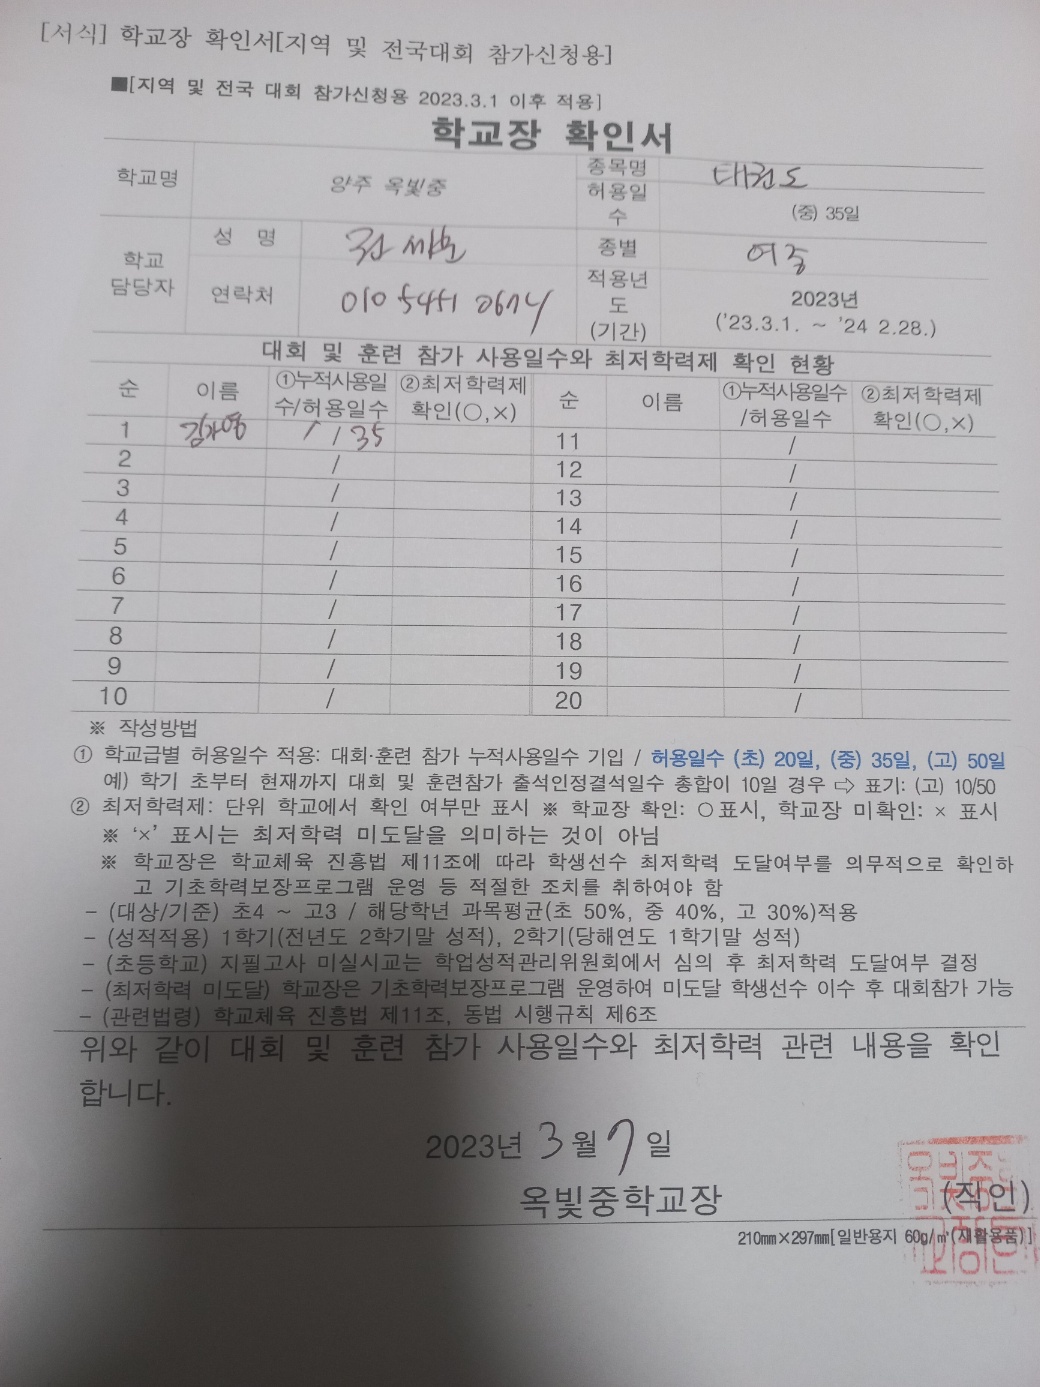 [서식] 학교장 확인서[지역 및 전국대회 참가신청용]
■[지역 및 전국 대회 참가신청용 2023.3.1 이후 적용]
학교장 확인서
학교명 양주 옥빛중 종목명 태권도
허용일수 (중) 35일
학교 담당자 성 명 종별 여중
연락처 010 5451 0674 적용년도 (기간) 2023년 ('23.3.1. ~ '24 2.28.)
대회 및 훈련 참가 사용일수와 최저학력제 확인 현황
순 이름 ①누적사용일수/허용일수 ②최저학력제 확인(○,×) 순 이름 ①누적사용일수/허용일수 ②최저학력제 확인(○,×)
1 김가영 1 / 35 11 /
2 / 12 /
3 / 13 /
4 / 14 /
5 / 15 /
6 / 16 /
7 / 17 /
8 / 18 /
9 / 19 /
10 / 20 /
※ 작성방법
① 학교급별 허용일수 적용: 대회·훈련 참가 누적사용일수 기입 / 허용일수 (초) 20일, (중) 35일, (고) 50일
예) 학기 초부터 현재까지 대회 및 훈련참가 출석인정결석일수 총합이 10일 경우 ⇨ 표기: (고) 10/50
② 최저학력제: 단위 학교에서 확인 여부만 표시 ※ 학교장 확인: ○표시, 학교장 미확인: × 표시
※ '×' 표시는 최저학력 미도달을 의미하는 것이 아님
※ 학교장은 학교체육 진흥법 제11조에 따라 학생선수 최저학력 도달여부를 의무적으로 확인하
고 기초학력보장프로그램 운영 등 적절한 조치를 취하여야 함
- (대상/기준) 초4 ~ 고3 / 해당학년 과목평균(초 50%, 중 40%, 고 30%)적용
- (성적적용) 1학기(전년도 2학기말 성적), 2학기(당해연도 1학기말 성적)
- (초등학교) 지필고사 미실시교는 학업성적관리위원회에서 심의 후 최저학력 도달여부 결정
- (최저학력 미도달) 학교장은 기초학력보장프로그램 운영하여 미도달 학생선수 이수 후 대회참가 가능
- (관련법령) 학교체육 진흥법 제11조, 동법 시행규칙 제6조
위와 같이 대회 및 훈련 참가 사용일수와 최저학력 관련 내용을 확인
합니다.
2023년 3월 7일
옥빛중학교장 (직인)
210㎜×297㎜[일반용지 60g/㎡(재활용품)]